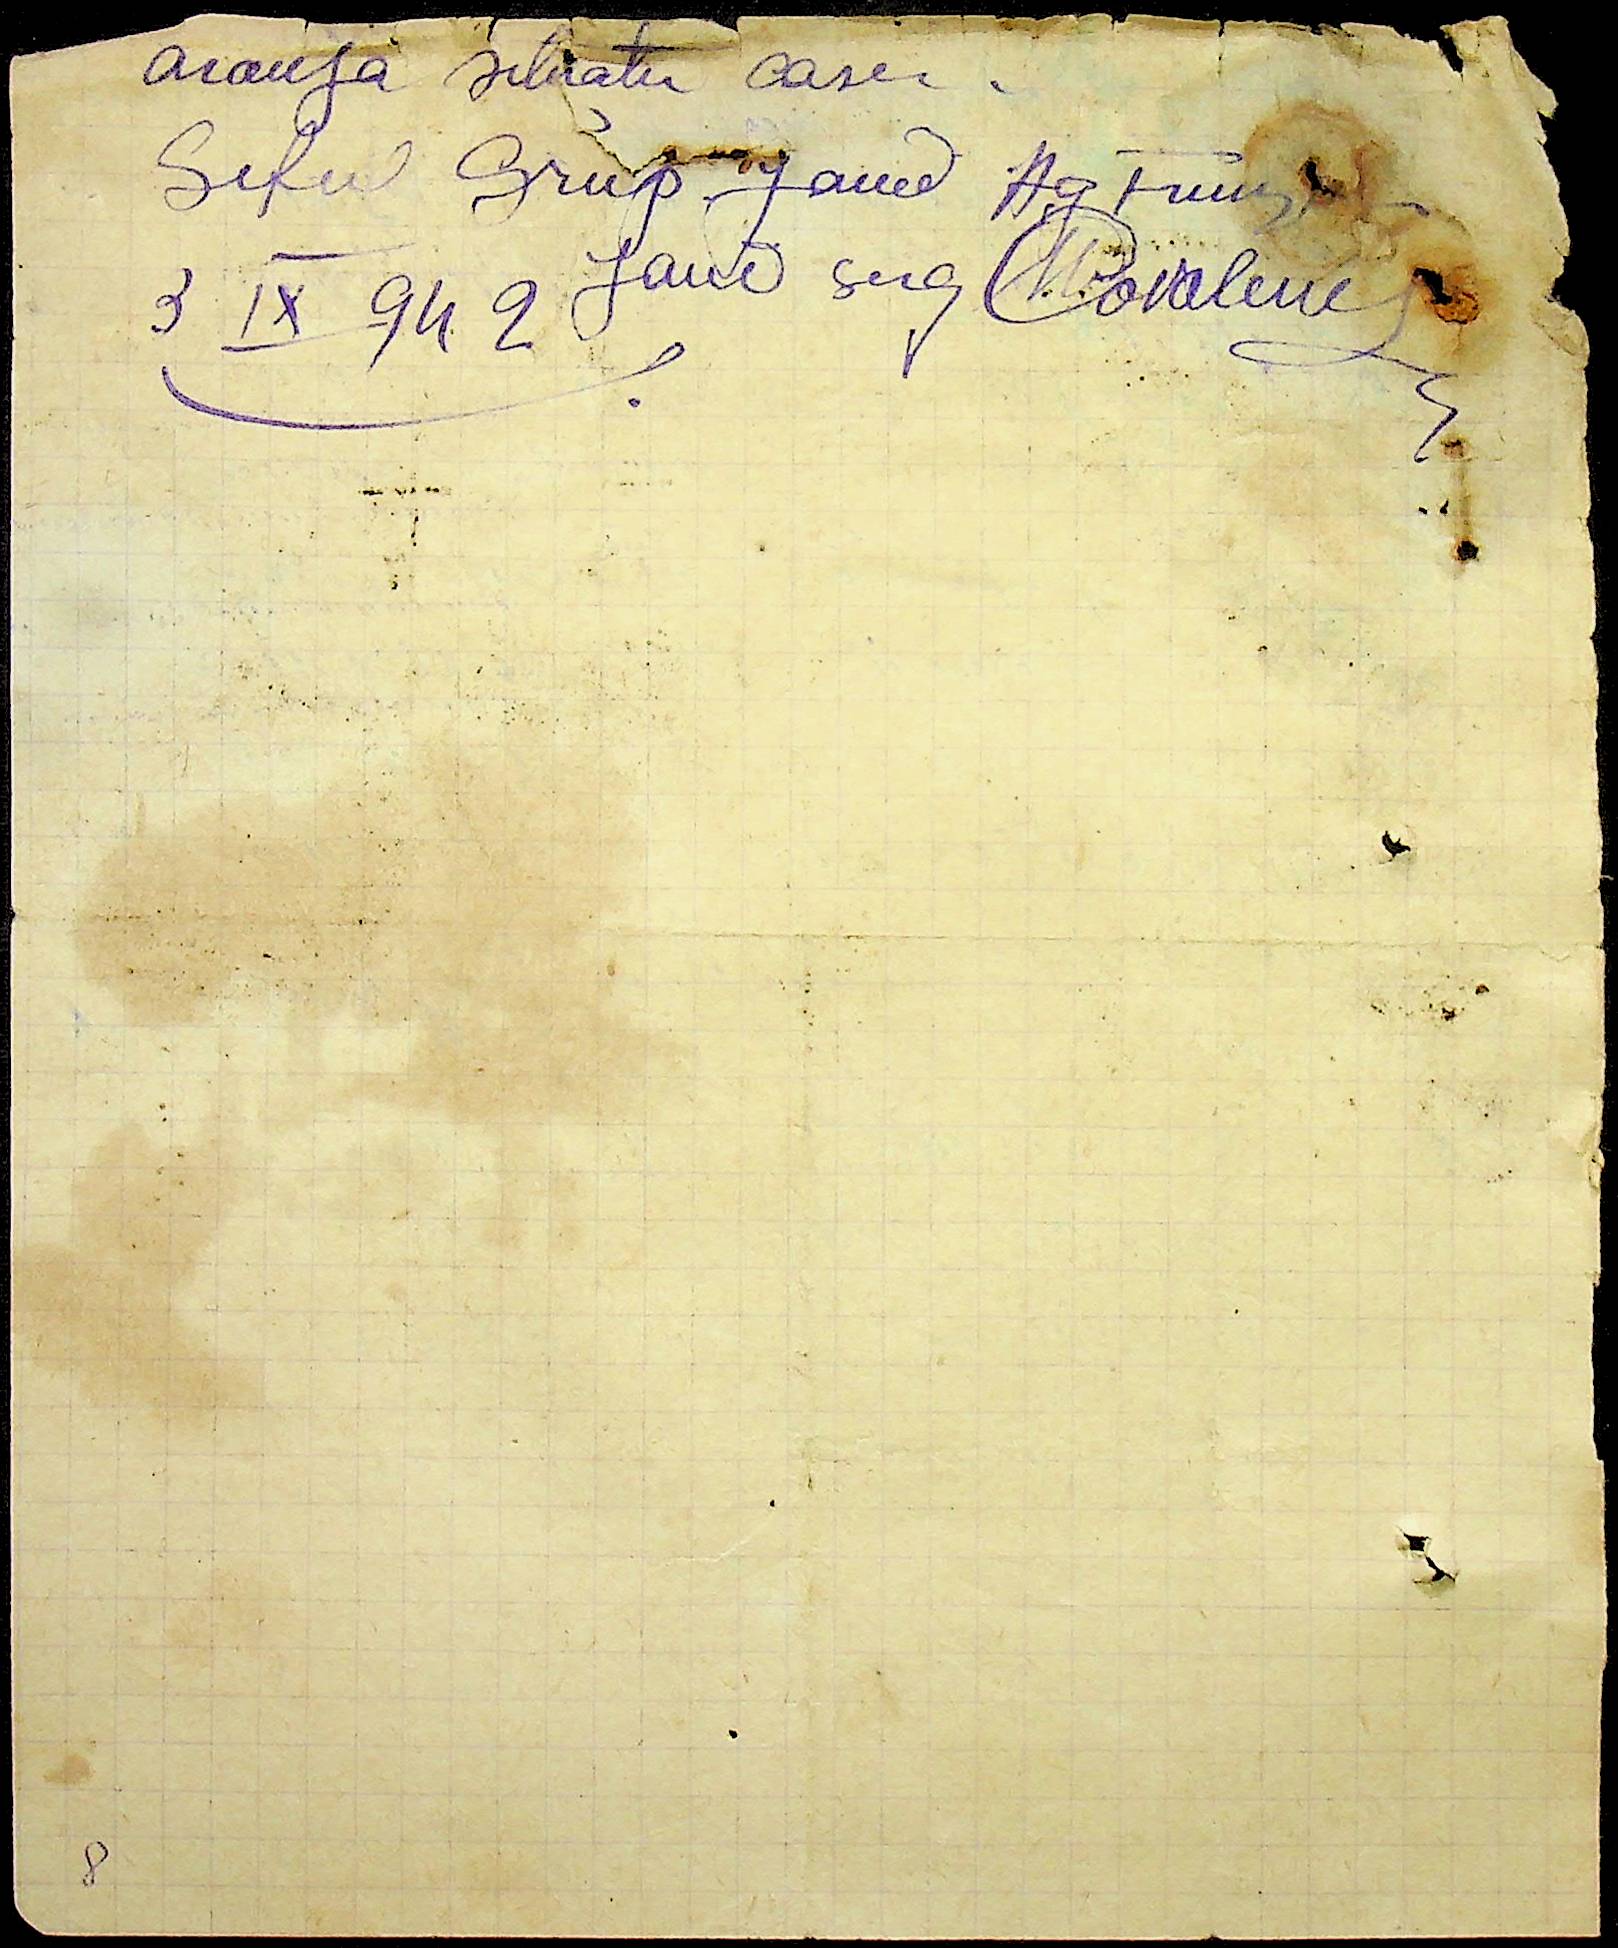 aranja situatia casei.
Seful Grup Jand Ag
Jand serg
3 IX 942
8